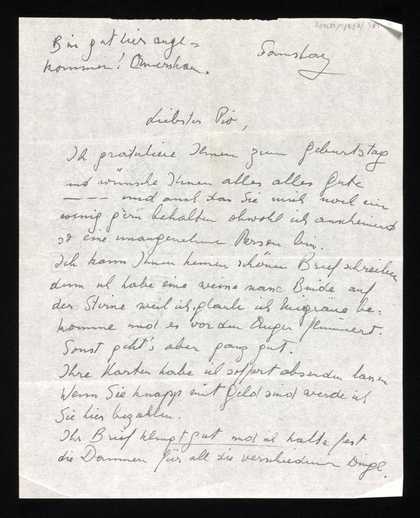 Bin gut hier ange=
kommen! Samstag
Liebster Pio,
Ich gratuliere Ihnen zum Geburtstag
und wünsche Ihnen alles alles Gute
---- und auch das Sie mich noch ein
wenig gern behalten obwohl ich anscheinend
so eine unangenehme Person bin.
Ich kann Ihnen keinen schönen Brief schreiben
denn ich habe eine nasse Binde auf
der Stirne weil ich glaube ich Migräne be-
komme und es vor den Augen flimmert.
Sonst geht's aber ganz gut.
Ihre Karten habe ich sofort absenden lassen
Wenn Sie knapp mit Geld sind werde ich
Sie hier bezahlen.
Ihr Brief klingt gut und ich halte fest
die Daumen für all die verschiedenen Dinge.